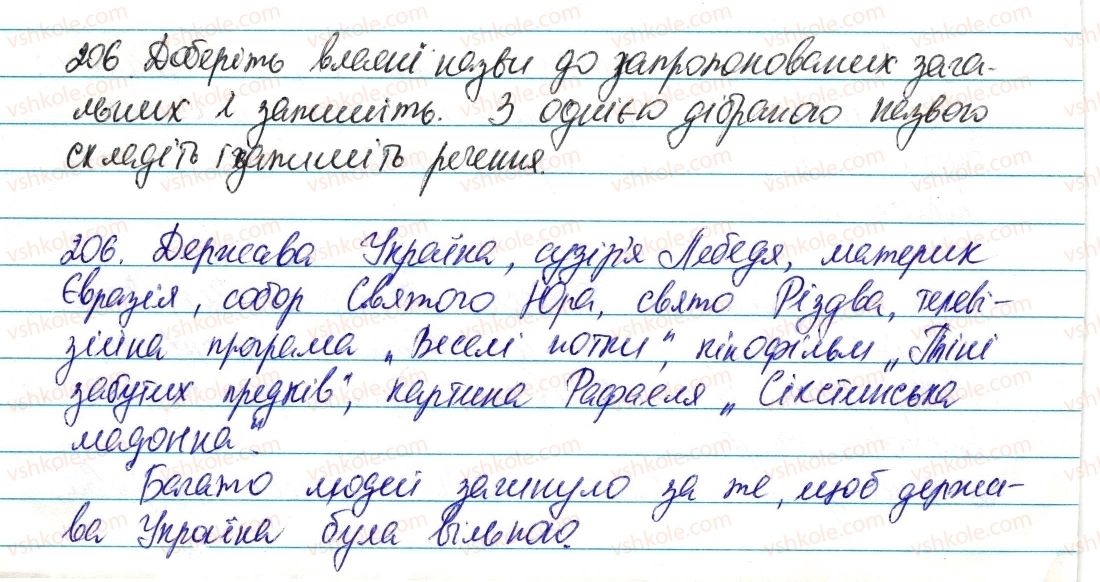 206. Доберіть власні назви до запропонованих зага-
льних і запишіть. З однією дібраною назвою
складіть і запишіть речення.
206. Держава Україна, сузір'я Лебедя, материк
Євразія, собор Святого Юра, свято Різдва, телеві-
зійна програма „Веселі нотки", кінофільм „Тіні
забутих предків", картина Рафаеля „Сікстинська
мадонна".
Багато людей загинуло за те, щоб держа-
ва Україна була вільною.